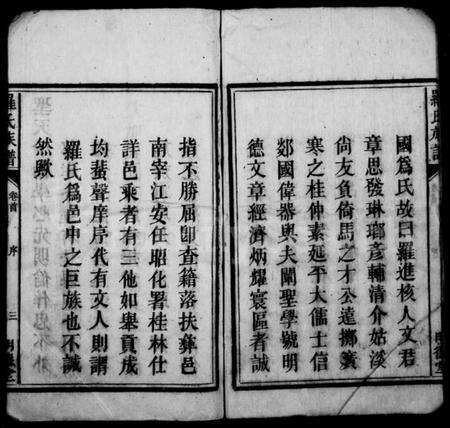 國爲氏故曰羅進核人文君
章思發琳瑯彥輔清介姑溪
尙友負倚馬之才公遠擲簧
寒之桂仲素延平大儒士信
郯國偉器與夫闡聖學號明
德文章經濟炳耀寰區者誠
指不勝屈卽查籍落扶彝邑
南宰江安任昭化署桂林仕
詳邑乘者有三他如舉貢成
均蜚聲庠序代有文人則謂
羅氏爲邑中之巨族也不誠
然歟
羅氏族譜
卷首
序
三